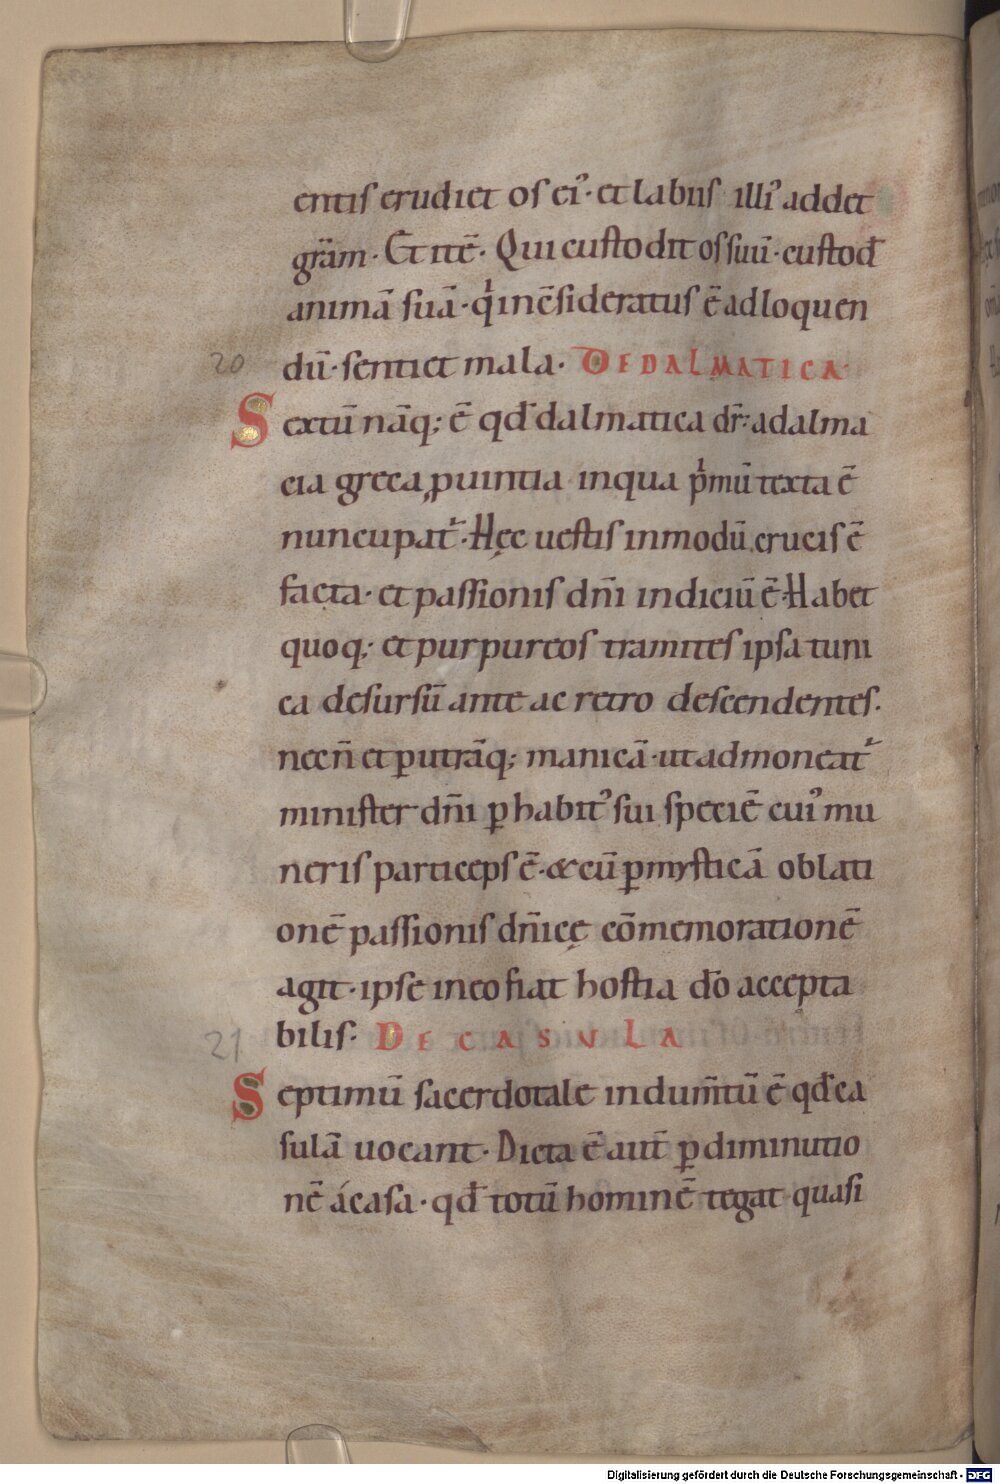 entis erudiet os ei᾽· et labiis illi᾽ addet
gr̄am · Et itē · Qui custodit os suū · custod̄
animā suā · qͥ inc̄sideratus ē ad loquen
20 dū · sentiet mala. DE DALMATICA·
Sextū nāq; ē qd̄ dalmatica dr̄ : a dalma
cia greca ꝓuintia in qua pͥmū texta ē
nuncupat᾽ · Hęc uestis in modū crucis ē
facta · et passionis dn̄i indiciū ē · Habet
quoq; et purpureos tramites ipsa tuni
ca desursū ante ac retro descendentes.
necn̄ et ꝑ utrāq; manicā · ut admoneat᾽
minister dn̄i ꝑ habit᾽ sui speciē cui᾽ mu
neris particeps ē · & cū ꝑ mysticā oblati
onē passionis dn̄icę cōmemorationē
agit · ipse in eo fiat hostia do̅ accepta
bilis. DE CASULA
21
Septimū sacerdotale indum̄tū ē qd̄ ca
sulā uocant · Dicta ē aut̄ ꝑ diminutio
nē á casa · qd̄ totū hominē tegat quasi
Digitalisierung gefördert durch die Deutsche Forschungsgemeinschaft - DFG